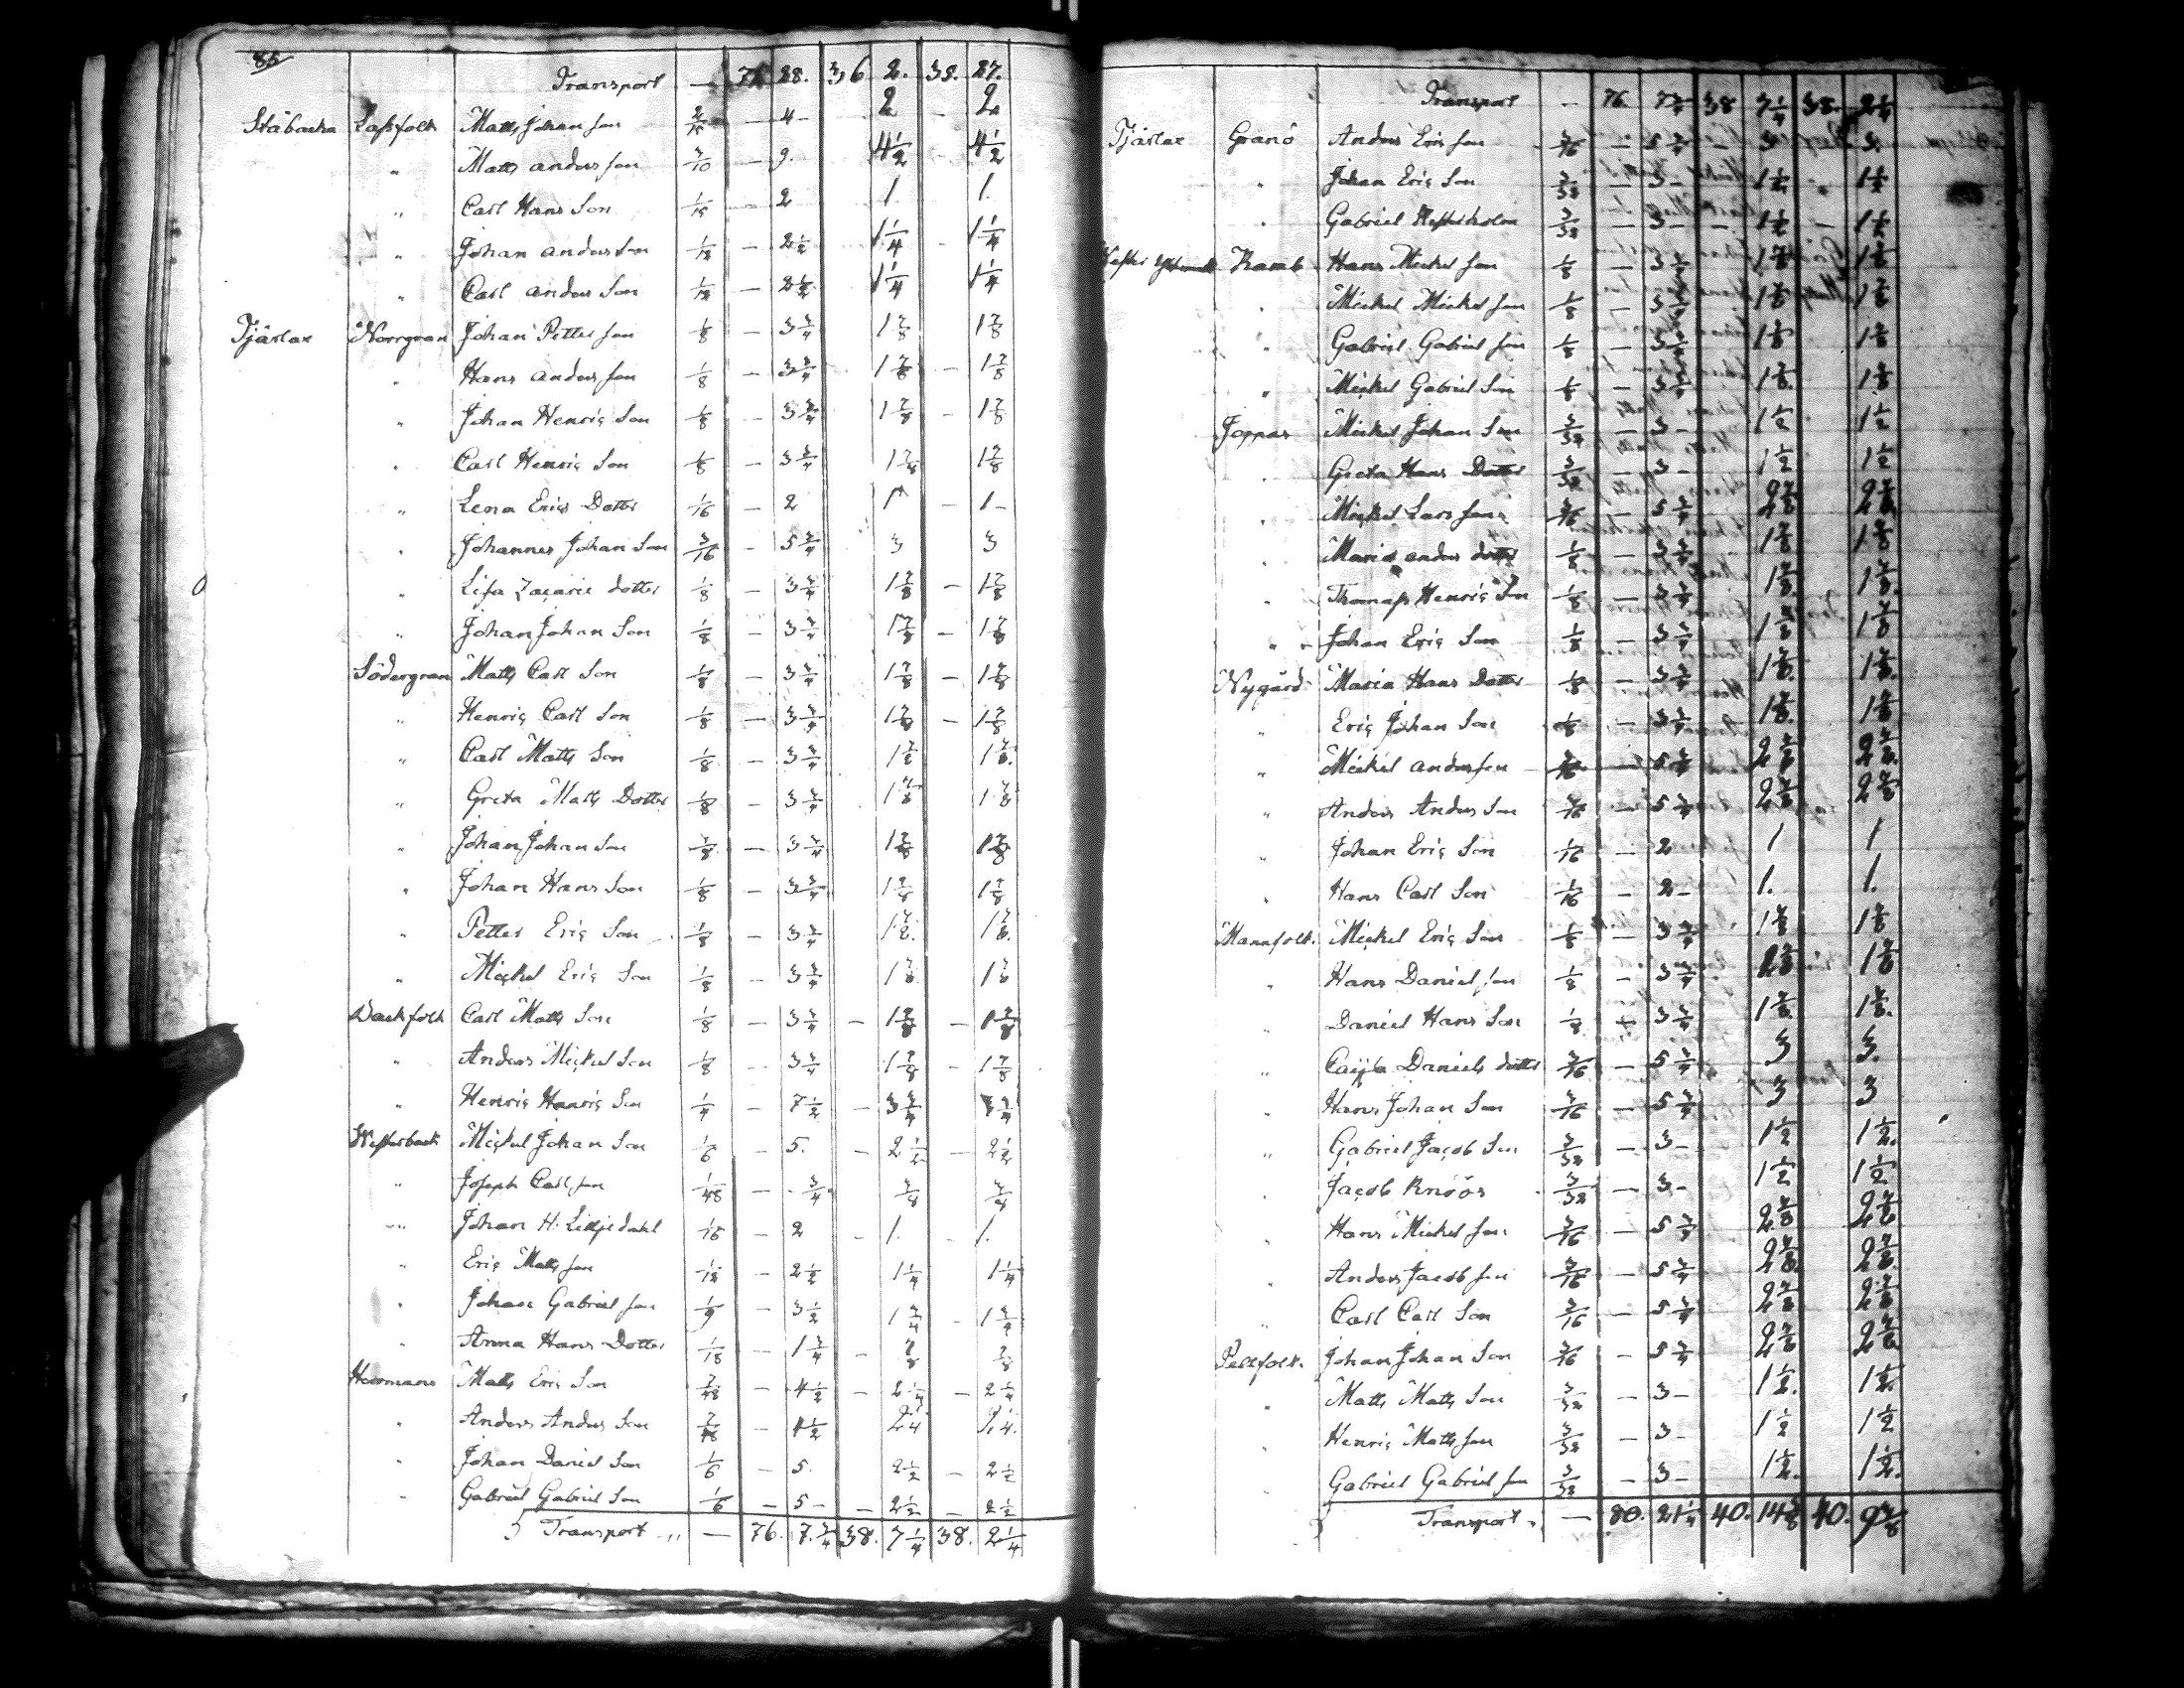 85
Transport — 76 28. 36 2. 38. 27.
Stäbacka Lassfolk Matts Johan Son 2/15 — 4 — 2 2
" Matts anders son 3/10 — 9. 4 1/2 — 4 1/2
" Carl Hans Son 1/15 — 2 1. 1.
" Johan anders Son 1/12 — 2 1/2 1 1/4 — 1 1/4
" Carl anders Son 1/12 — 2 1/2 1 1/4 1 1/4
Tjärlax Norrgran Johan Petter son 1/8 — 3 3/4 1 7/8 1 7/8
" Hans anders son 1/8 — 3 3/4 1 7/8 — 1 7/8
" Johan Henric Son 1/8 — 3 3/4 1 7/8 — 1 7/8
" Carl Henric Son 1/8 — 3 3/4 1 7/8 1 7/8
" Lena Erics Dotter 1/16 — 2 1 — 1 —
" Johannes Johan Son 3/16 — 5 3/4 3 3
" Lisa Zacarie dotter 1/8 — 3 3/4 1 7/8 — 1 7/8
" Johan Johan Son 1/8 — 3 3/4 1 7/8 — 1 7/8
Södergran Matts Carl Son 1/8 — 3 3/4 1 7/8 — 1 7/8
" Henric Carl Son 1/8 — 3 3/4 1 7/8 — 1 7/8
" Carl Matts Son 1/8 — 3 3/4 1 7/8 1 7/8.
" Greta Matts Dotter 1/8 — 3 3/4 1 7/8 1 7/8
" Johan Johan Son 1/8 — 3 3/4 1 7/8 1 7/8
" Johan Hans Son 1/8 — 3 3/4 1 7/8 1 7/8
" Petter Eric Son 1/8 — 3 3/4 1 7/8. 1 7/8.
" Mickel Eric Son 1/8 — 3 3/4 1 7/8 1 7/8
Backfolk Carl Matts Son 1/8 — 3 3/4 — 1 7/8 — 1 7/8
" Anders Mickel Son 1/8 — 3 3/4 1 7/8 — 1 7/8
" Henric Henric Son 1/4 — 7 1/2 — 3 3/4 3 3/4
Westerback Mickel Johan Son 1/6 — 5. — 2 1/2 — 2 1/2
" Joseph Carl son 1/48 — 3/4 3/8 3/8
" Johan H. Lilljedahl 1/15 — 2 — 1. — 1.
" Eric Matts son 1/12 — 2 1/2 1 1/4 1 1/4
" Johan Gabriel son 1/9 — 3 1/2 1 3/4 — 1 3/4
" Anna Hans Dotter 1/18 — 1 3/4 — 7/8 7/8
Hermans Matts Eric Son 7/48 — 4 1/2 — 2 1/4 — 2 1/4
" Anders Anders Son 7/48 — 4 1/2 2 1/4 2 1/4.
" Johan Daniel Son 1/6 — 5. 2 1/2 — 2 1/2
" Gabriel Gabriel Son 1/6 — 5 — — 2 1/2 — 2 1/2
Transport — 76. 7 3/4 38. 7 1/4 38. 2 1/4
Transport — 76. 7 3/4 38 7 1/4 38. 2 1/4
Tjärlax Granö Anders Eric son 3/16 — 5 3/4 — 3 3.
" Johan Eric Son 3/32 — 3 — 1 1/2 1 1/2
" Gabriel Westerholm 3/32 — 3 — — 1 1/2 — 1 1/2
Kamb Hans Mickel son 1/8 — 3 3/4 1 7/8 1 7/8
" Mickel Mickel son 1/8 — 3 3/4 1 7/8 1 7/8
" Gabriel Gabriel son 1/8 — 3 3/4 1 7/8 1 7/8
" Mickel Gabriel Son 1/8 — 3 3/4 1 7/8. 1 7/8
Joppas Mickel Johan Son 3/32 — 3 — 1 1/2 1 1/2
" Greta Hans Dotter 3/32 — 3 — 1 1/2 1 1/2
" Mickel Lars son 3/16 — 5 3/4 2 7/8 2 7/8
" Maria anders dotter 1/8 — 3 3/4 1 7/8 1 7/8
" Thomass Henric Son 1/8 — 3 3/4 1 7/8. 1 7/8.
" Johan Eric Son 1/8 — 3 3/4 1 7/8 1 7/8
Nygård Maria Hans Dotter 1/8 — 3 3/4 1 7/8. 1 7/8.
" Eric Johan Son 1/8 — 3 3/4 1 7/8. 1 7/8
" Mickel anders son 3/16 — 5 3/4 2 7/8 2 7/8.
" Anders Anders Son 3/16 — 5 3/4 2 7/8 2 7/8
" Johan Eric Son 1/16 — 2 1 1
" Hans Carl Son 1/16 — 2 — 1. 1.
Mannfolk. Mickel Eric Son 1/8 — 3 3/4 1 7/8 1 7/8
" Hans Daniel son 1/8 — 3 3/4 1 7/8 1 7/8
" Daniel Hans Son 1/8 — 3 3/4 1 7/8. 1 7/8.
" Caijsa Daniels dotter 3/16 — 5 3/4 3 3.
" Hans Johan Son 3/16 — 5 3/4 3 3
" Gabriel Jacob Son 3/32 — 3 — 1 1/2 1 1/2.
" Jacob Knöös 3/32 — 3 — 1 1/2 1 1/2
" Hans Mickel son 3/16 — 5 3/4 2 7/8 2 7/8
" Anders Jacob son 3/16 — 5 3/4 2 7/8. 2 7/8.
" Carl Carl Son 3/16 — 5 3/4 2 7/8 2 7/8
Pellfolk. Johan Johan Son 3/16 — 5 3/4 2 7/8 2 7/8
" Matts Matts Son 3/32 — 3 — 1 1/2. 1 1/2.
" Henric Matts son 3/32 — 3 — 1 1/2 1 1/2
" Gabriel Gabriel son 3/32 — 3 — 1 1/2. 1 1/2.
Transport — 80. 21 1/4 40. 14 3/8 40. 9 3/8